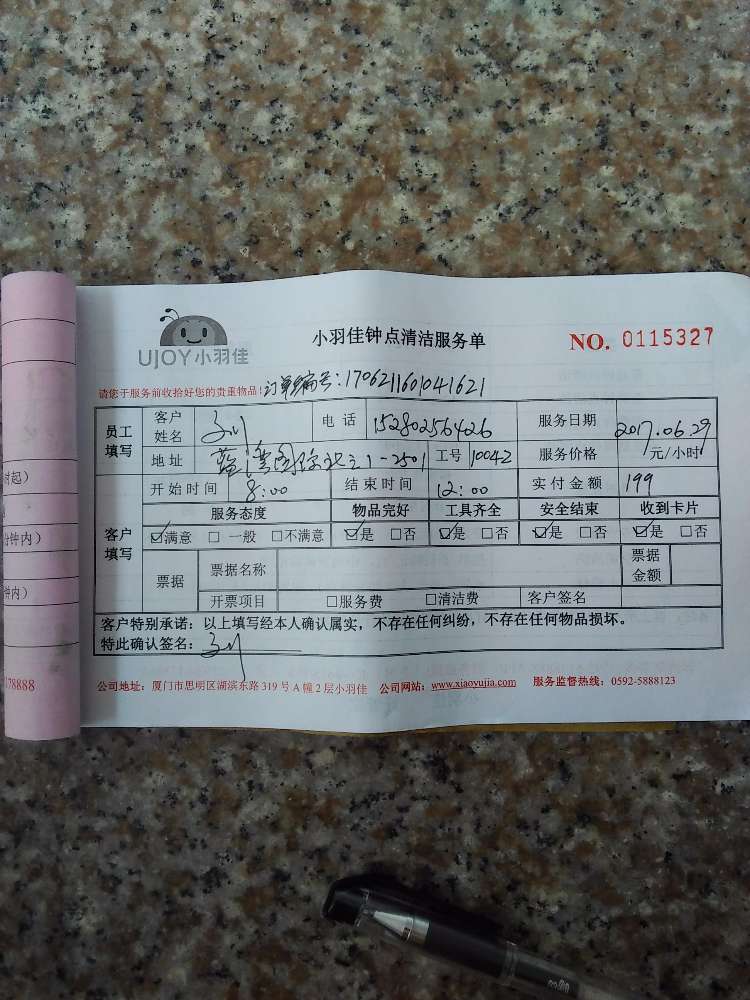 UJOY小羽佳
小羽佳钟点清洁服务单
NO. 0115327
请您于服务前收拾好您的贵重物品!
订单编号:1706211601041621
员工填写 客户姓名 电话 15280256426 服务日期 2017.06.29
地址 蓝湾国际 1-2501 工号 10042 服务价格 元/小时
客户填写 开始时间 8:00 结束时间 12:00 实付金额 199
服务态度 物品完好 工具齐全 安全结束 收到卡片
☑满意 □一般 □不满意 ☑是 □否 ☑是 □否 ☑是 □否 ☑是 □否
票据 票据名称 票据金额
开票项目 □服务费 □清洁费 客户签名
客户特别承诺:以上填写经本人确认属实,不存在任何纠纷,不存在任何物品损坏。
特此确认签名:
公司地址:厦门市思明区湖滨东路319号A幢2层小羽佳 公司网站:www.xiaoyujia.com 服务监督热线:0592-5888123
时起)
分钟内)
钟内)
178888